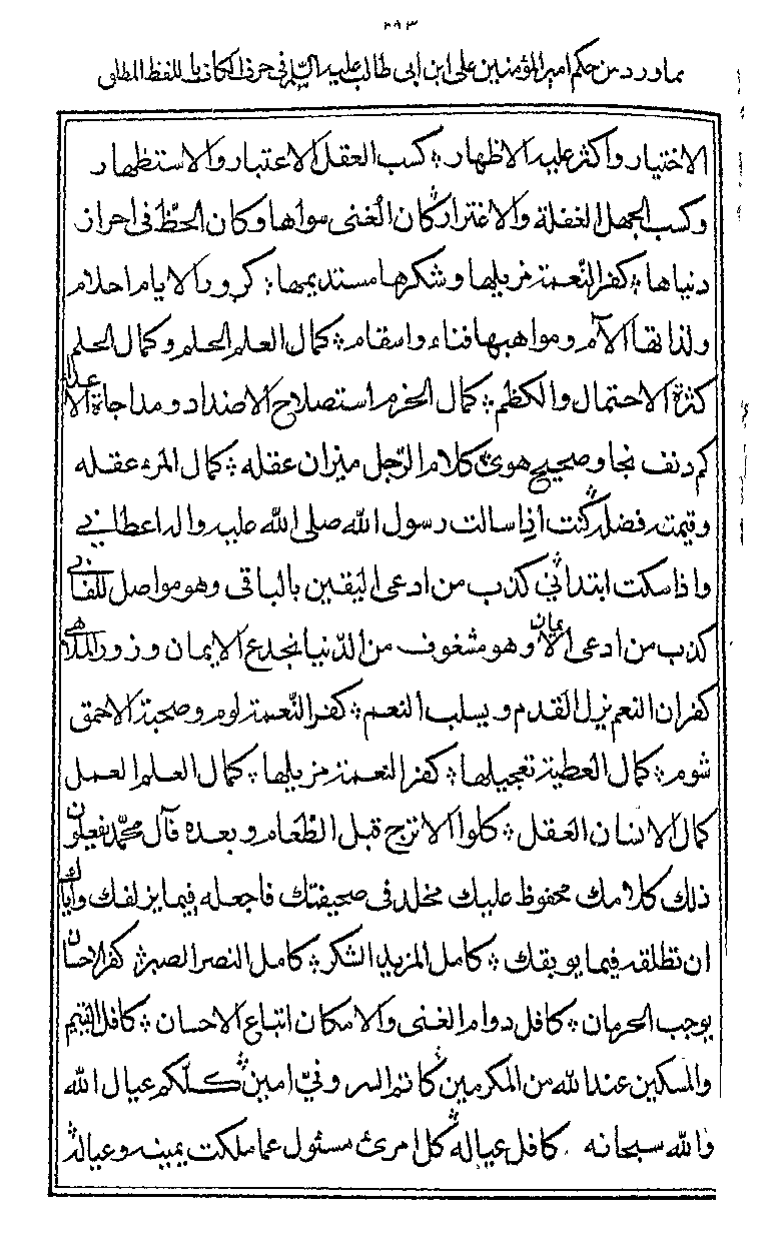 ٢٩٣
مما ورد من حكم امير المؤمنين على ابن ابى طالب عليه السلم فى حرف الكاف باللفظ المطلق
الاختيار واكثر عليه الاظهار ؛ كسب العقل الاعتبار والاستظهار
وكسب الجهل الغفلة والاغترار ؛ كان الغنى سواها وكان الحظ فى احراز
دنياها ؛ كفر النعمة مزيلها وشكرها مستديمها ؛ كرور الايام احلام
ولذاتها آلام ومواهبها فناء واسقام ؛ كمال العلم الحلم وكمال الحلم
كثرة الاحتمال والكظم ؛ كمال الحزم استصلاح الاضداد ومداجاة الاعداء
كم دنف نجا وصحيح هوى ؛ كلام الرجل ميزان عقله ؛ كمال المرء عقله
وقيمته فضله ؛ كنت اذا سالت رسول الله صلى الله عليه واله اعطانى
واذا سكت ابتدانى ؛ كذب من ادعى اليقين بالباقى وهو مواصل للفانى
كذب من ادعى الايمان وهو مشغوف من الدنيا بخدع الايمان وزور الملاهى
كفران النعم يزل القدم ويسلب النعم ؛ كفر النعمة لوم وصحبة الاحمق
شوم ؛ كمال العطية تعجيلها ؛ كفر النعمة مزيلها ؛ كمال العلم العمل
كمال الانسان العقل ؛ كلوا الاترج قبل الطعام وبعده فآل محمد يفعلون
ذلك كلامك محفوظ عليك مخلد فى صحيفتك فاجعله فيما يزلفك واياك
ان تطلقه فيما يوبقك ؛ كامل المزيد الشكر ؛ كامل النصر الصبر ؛ كفر الاحسان
يوجب الحرمان ؛ كافل دوام الغنى والامكان اتباع الاحسان ؛ كافل اليتيم
والمسكين عند الله من المكرمين ؛ كاتم السر وفىّ امين ؛ كلكم عيال الله
والله سبحانه كافل عياله ؛ كل امرئ مسئول عما ملكت يمينه وعياله